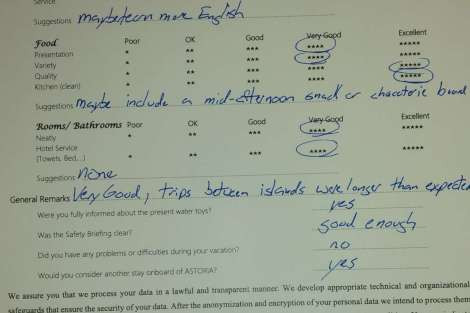 Service
Suggestions maybe learn more English
Food Poor OK Good Very Good Excellent
Presentation * ** *** **** *****
Variety * ** *** **** *****
Quality * ** *** **** *****
Kitchen (clean) * ** *** **** *****
Suggestions Maybe include a mid-afternoon snack or chacoterie board
Rooms/ Bathrooms Poor OK Good Very Good Excellent
Neaty * ** *** **** *****
Hotel Service
(Towels, Bed,...) * ** *** **** *****
Suggestions None
General Remarks Very Good, trips between islands were longer than expected
Were you fully informed about the present water toys? yes
Was the Safety Briefing clear? good enough
Did you have any problems or difficulties during your vacation? no
Would you consider another stay onboard of ASTORIA? yes
We assure you that we process your data in a lawful and transparent manner. We develop appropriate technical and organizational
safeguards that ensure the security of your data. After the anonymization and encryption of your personal data we intend to process them